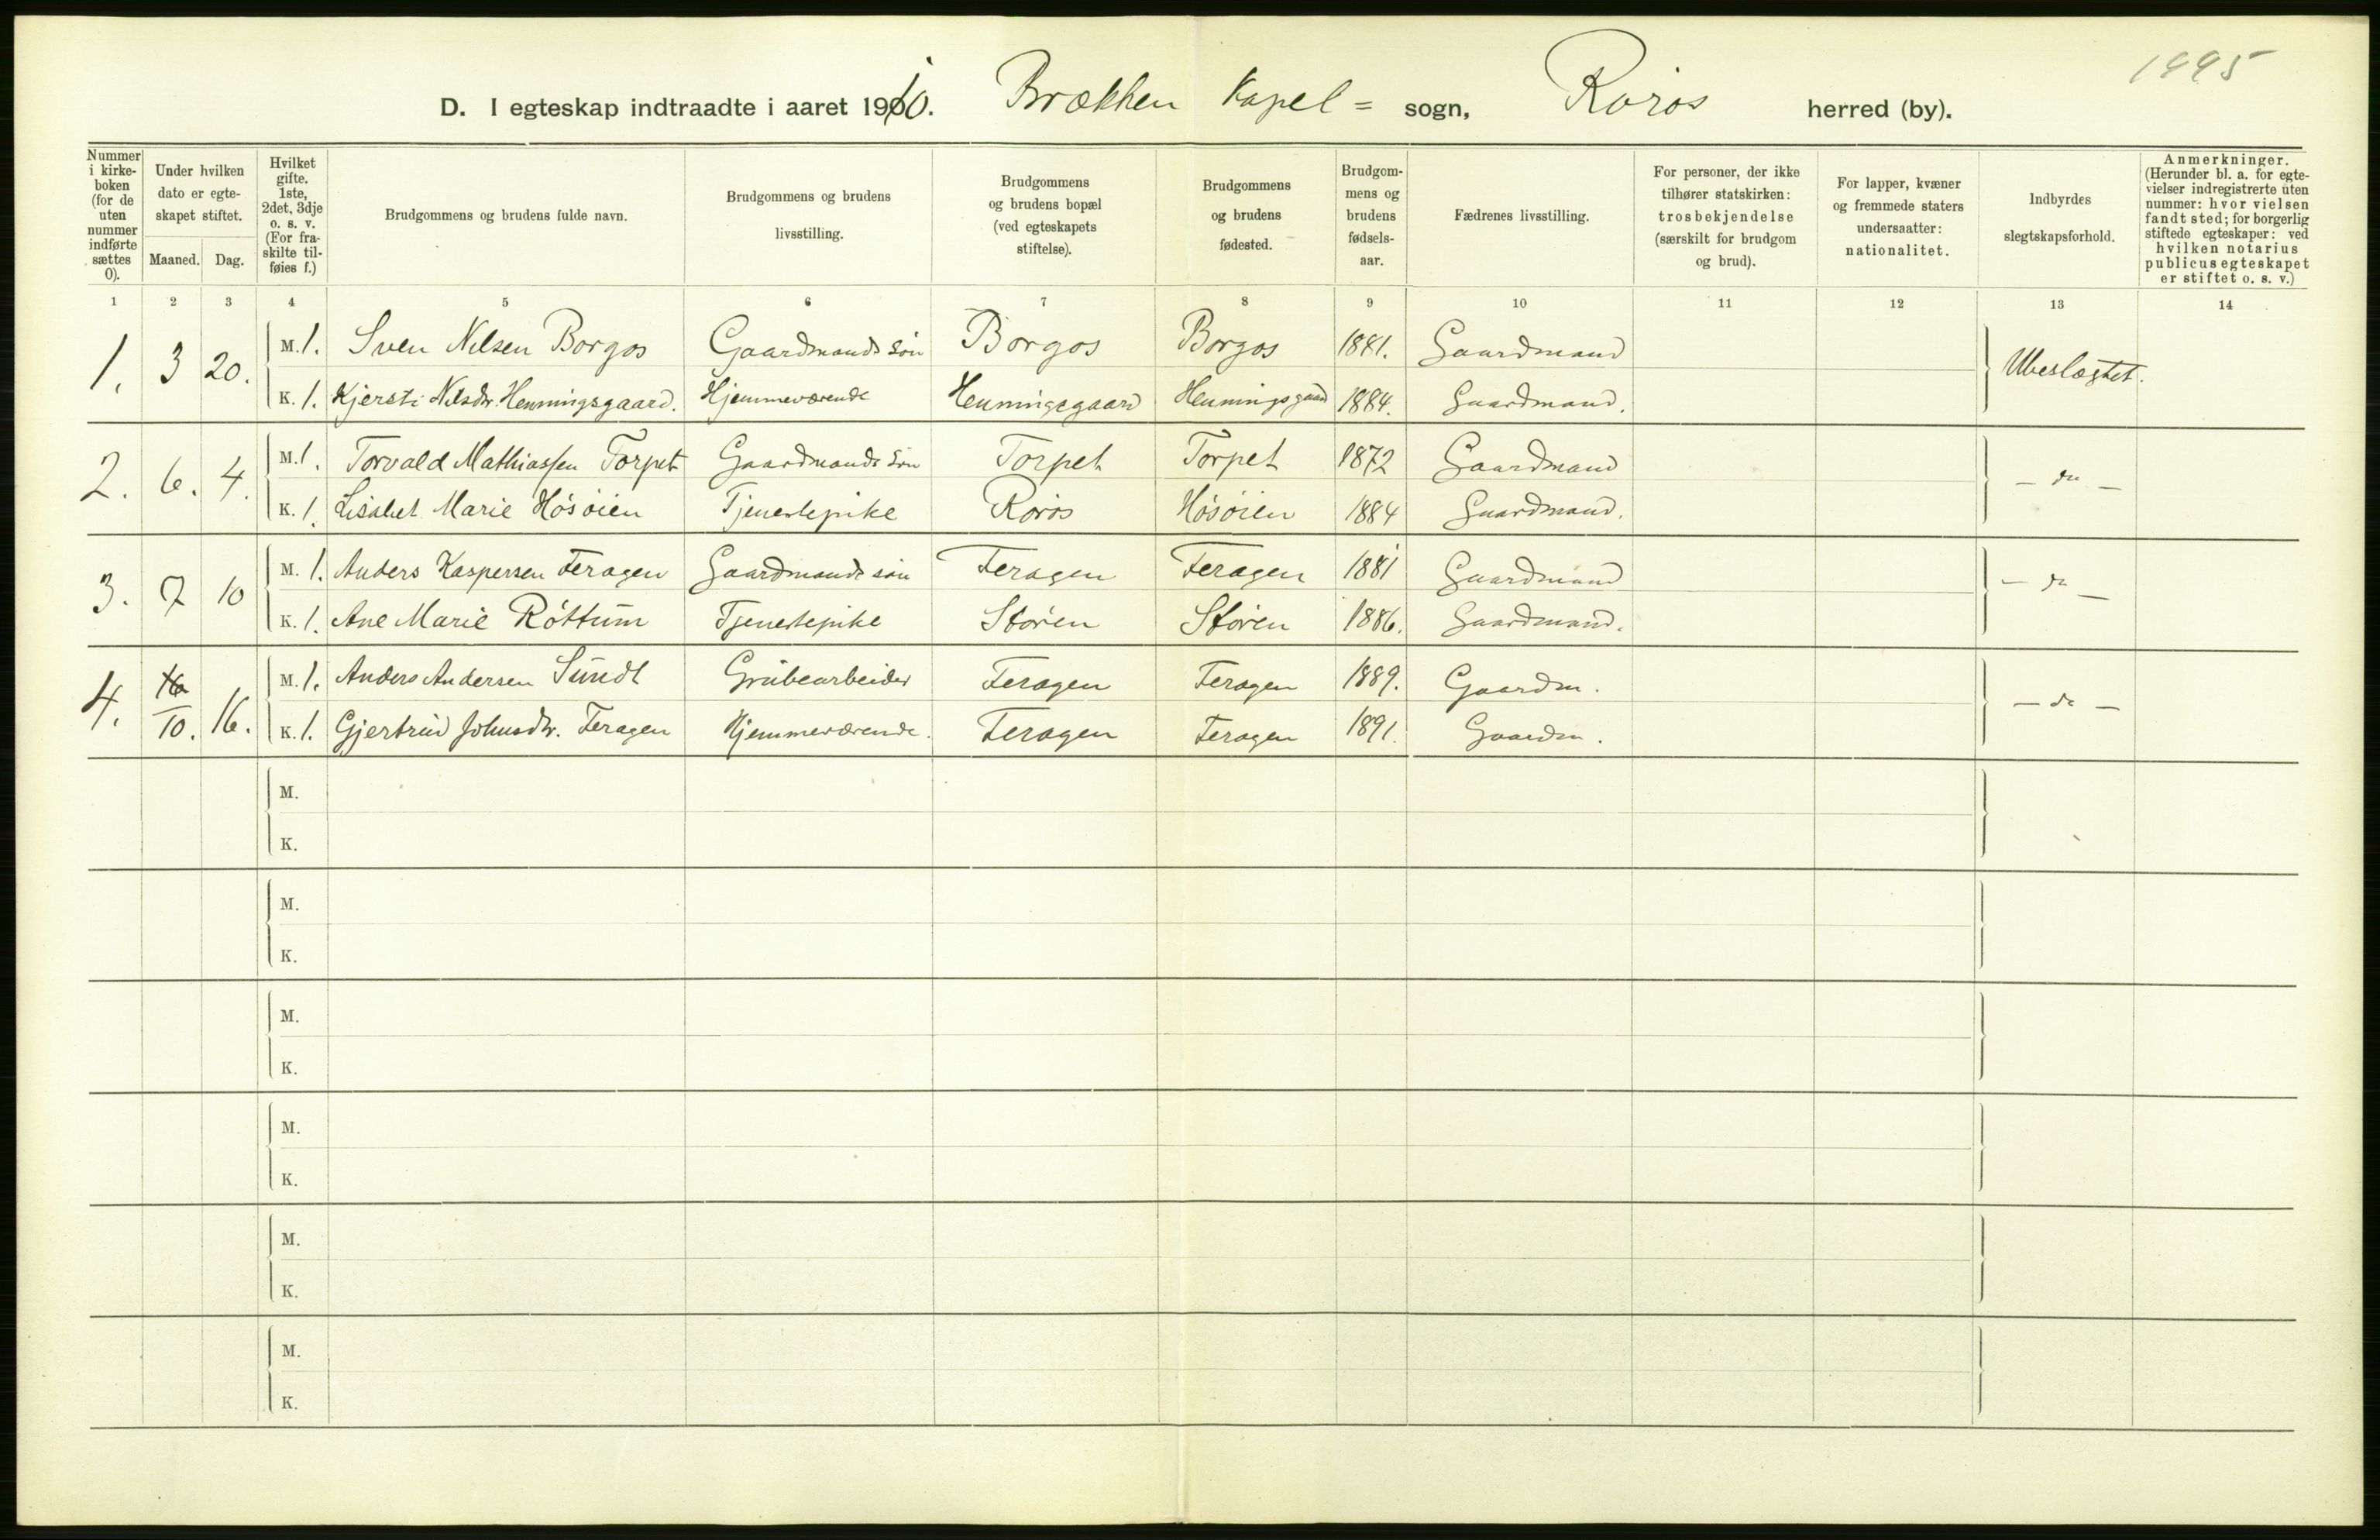 1995
D. I egteskap indtraadte i aaret 1910. Brækken Kapel = sogn, Røros herred (by).
Nummer i kirke-boken (for de uten nummer indførte sættes 0).
Under hvilken dato er egte-skapet stiftet.
Maaned. Dag.
Hvilket gifte. 1ste, 2det, 3dje o. s. v. (For fra-skilte til-føies f.)
Brudgommens og brudens fulde navn.
Brudgommens og brudens livsstilling.
Brudgommens og brudens bopæl (ved egteskapets stiftelse).
Brudgommens og brudens fødested.
Brudgom-mens og brudens fødsels-aar.
Fædrenes livsstilling.
For personer, der ikke tilhører statskirken: trosbekjendelse (særskilt for brudgom og brud).
For lapper, kvæner og fremmede staters undersaatter: nationalitet.
Indbyrdes slegtskapsforhold.
Anmerkninger. (Herunder bl. a. for egte-vielser indregistrerte uten nummer: hvor vielsen fandt sted; for borgerlig stiftede egteskaper: ved hvilken notarius publicus egteskapet er stiftet o. s. v.)
1 2 3 4 5 6 7 8 9 10 11 12 13 14
1. 3 20. M. 1. Sven Nilsen Borgos Gaardmands søn Borgos Borgos 1881. Gaardmand Ubeslægtet.
K. 1. Kjersti Nilsdtr. Henningsgaard. Hjemmeværende Henningsgaard Henningsgaard 1884. Gaardmand.
2. 6. 4. M. 1. Torvald Mathiassen Torpet Gaardmands søn Torpet Torpet 1872 Gaardmand – do –
K. 1. Lisabet Marie Høsøien Tjenestepike Røros Høsøien 1884 Gaardmand.
3. 7 10 M. 1. Anders Kaspersen Feragen Gaardmands søn Feragen Feragen 1881 Gaardmand – do –
K. 1. Ane Marie Røttum Tjenestepike Støren Støren 1886. Gaardmand.
4. 10. 16. M. 1. Anders Andersen Sundt Grubearbeider Feragen Feragen 1889. Gaardm. – do –
K. 1. Gjertrud Johnsdtr. Feragen Hjemmeværende. Feragen Feragen 1891. Gaardm.
M.
K.
M.
K.
M.
K.
M.
K.
M.
K.
M.
K.